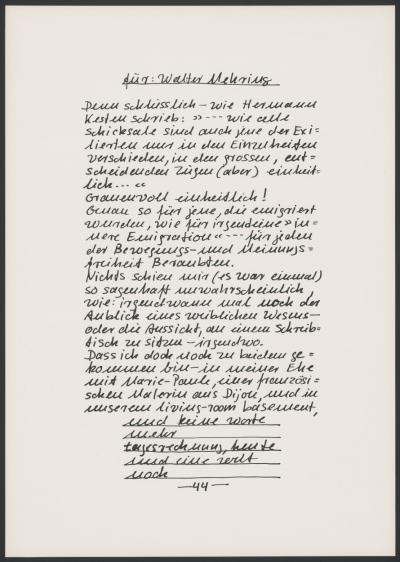 für: Walter Mehring
Denn schlüsslich – wie Hermann
Kesten schrieb: »--- wie alle
schicksale sind auch jene der Exi=
lierten nur in den Einzelheiten
verschieden, in den grossen, ent=
scheidenden Zügen (aber) einheit=
lich... «
Grauenvoll einheitlich!
Genau so für jene, die emigriert
wurden, wie für irgendeine »in=
nere Emigration« --- für jeden
der Bewegungs- und Meinungs=
freiheit Beraubten.
Nichts schien mir (es war einmal)
so sagenhaft unwahrscheinlich,
wie: irgendwann mal noch der
Anblick eines weiblichen Wesens –
oder die Aussicht, an einem Schreib=
tisch zu sitzen – irgendwo.
Dass ich doch noch zu beiden ge=
kommen bin – in meiner Ehe
mit Marie-Paule, einer französi=
schen Malerin aus Dijon, und in
unserem living-room basement,
und keine worte
mehr
tagesrechnung, heute
und eine welt
noch
— 44 —